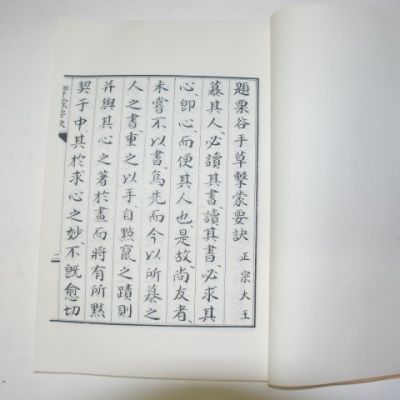 題栗谷手草擊蒙要訣 正宗大王
慕其人、必讀其書、讀其書、必求其
心、卽心而便其人也、是故、尚友者、
未嘗不以書、爲先而今以所慕之
人之書、重之以手自點竄之蹟則
并與其心之著於畫而將有所默
契于中、其於求心之妙、不旣愈切